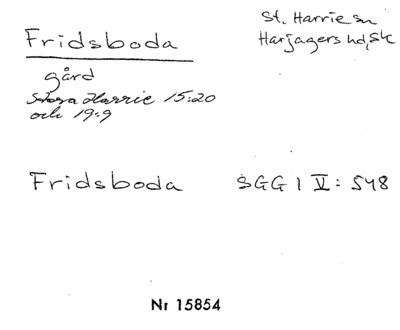 Fridsboda
St. Harrie sn
Harjagers hd, Sk
gård
Stora Harrie 15:20
och 19:9
Fridsboda SGG I V: 548
Nr 15854